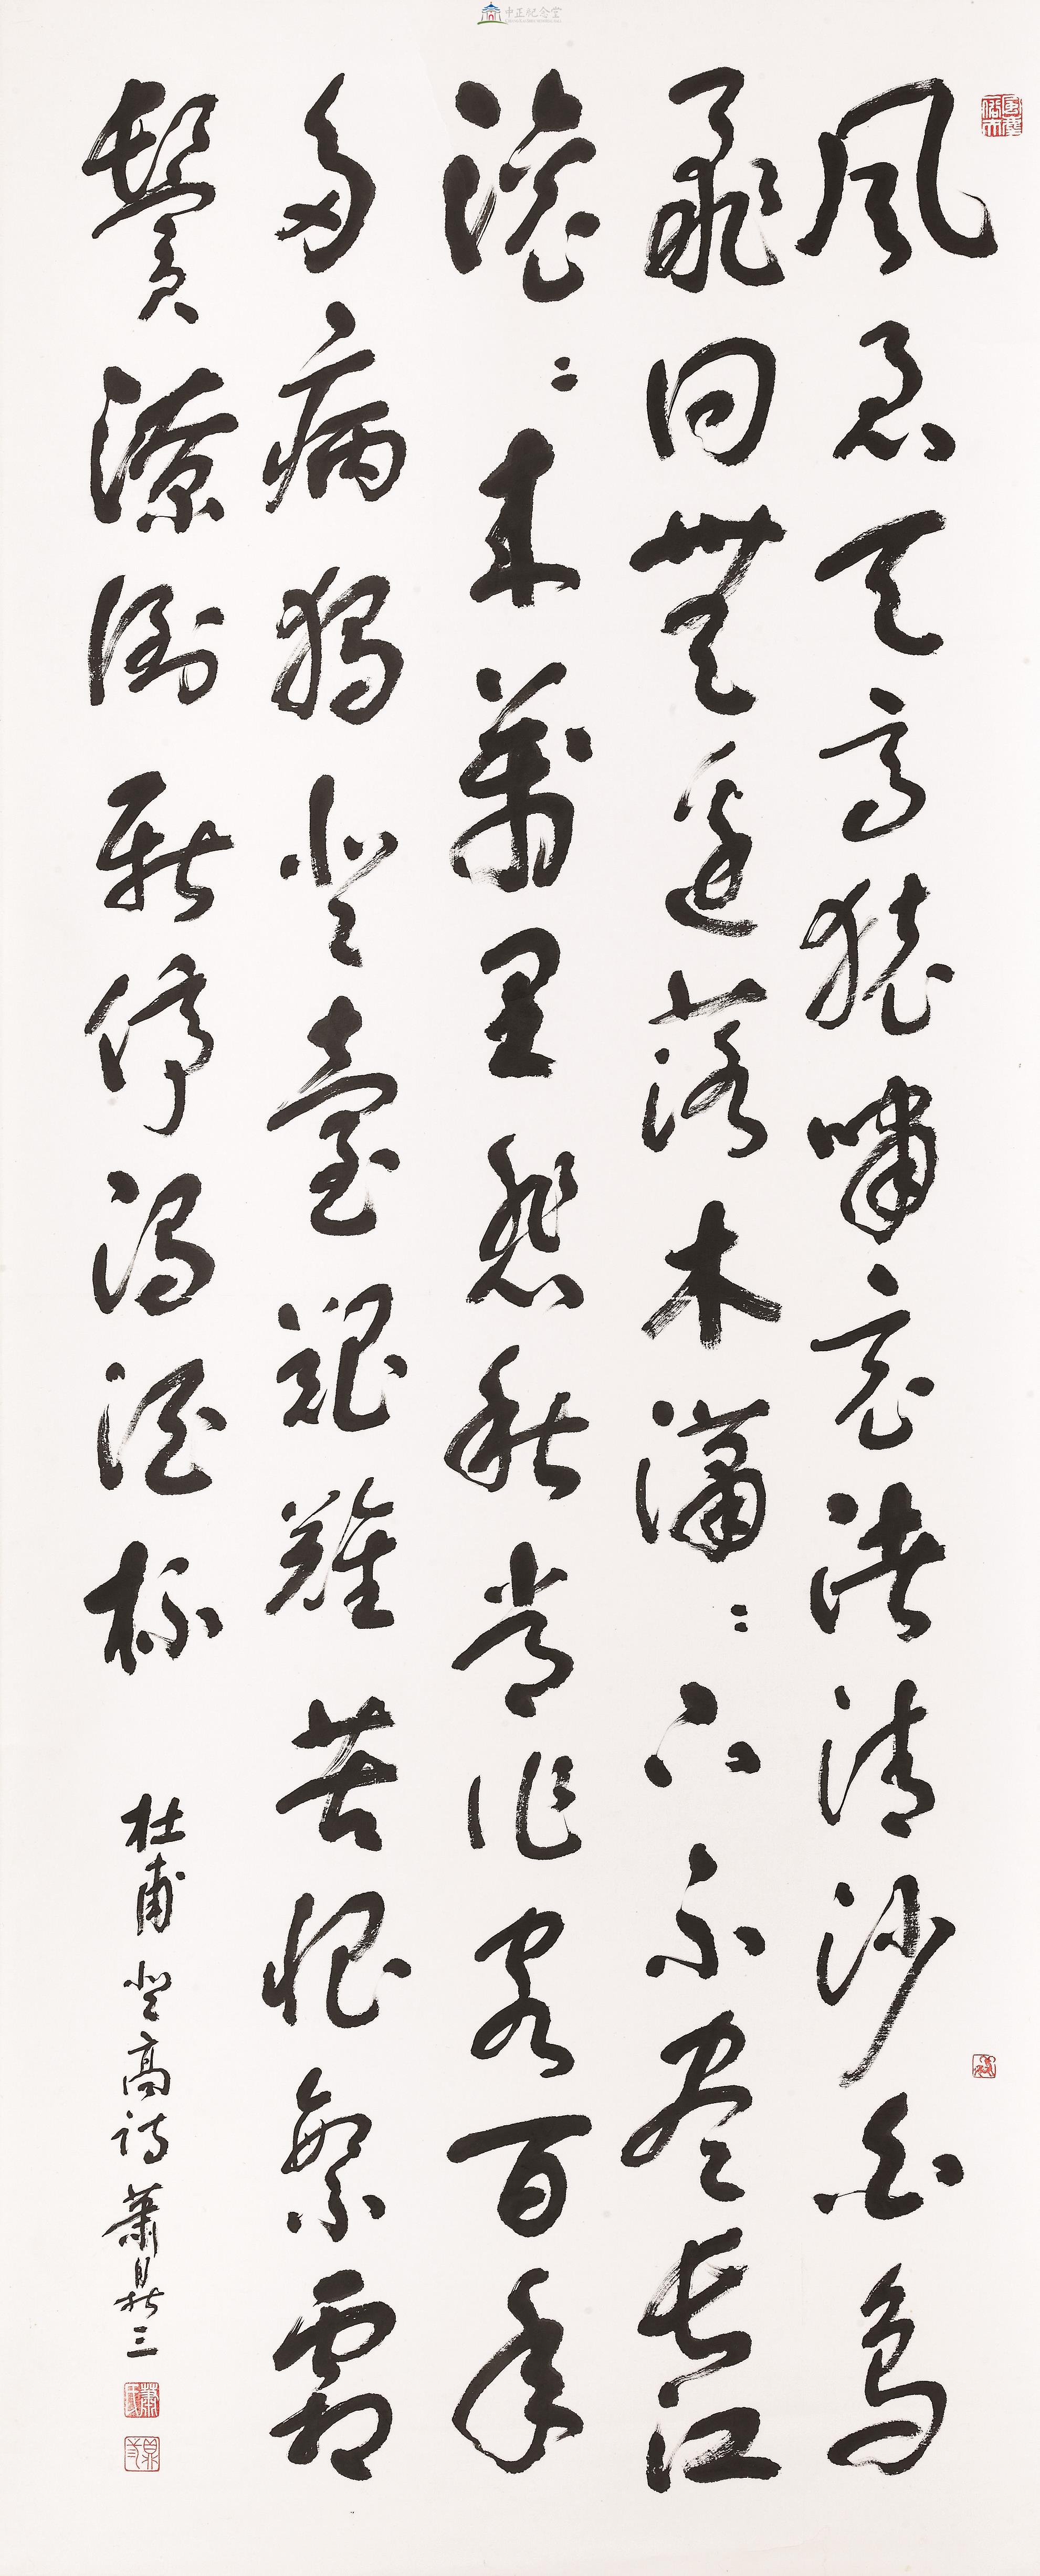 中正紀念堂
風急天高猿嘯哀渚清沙白鳥
飛回無邊落木瀟〻下不盡長江
滾〻來萬里悲秋常作客百年
多病獨登臺艱難苦恨繁霜
鬢潦倒新停濁酒杯
杜甫登高詩 蕭鼎三